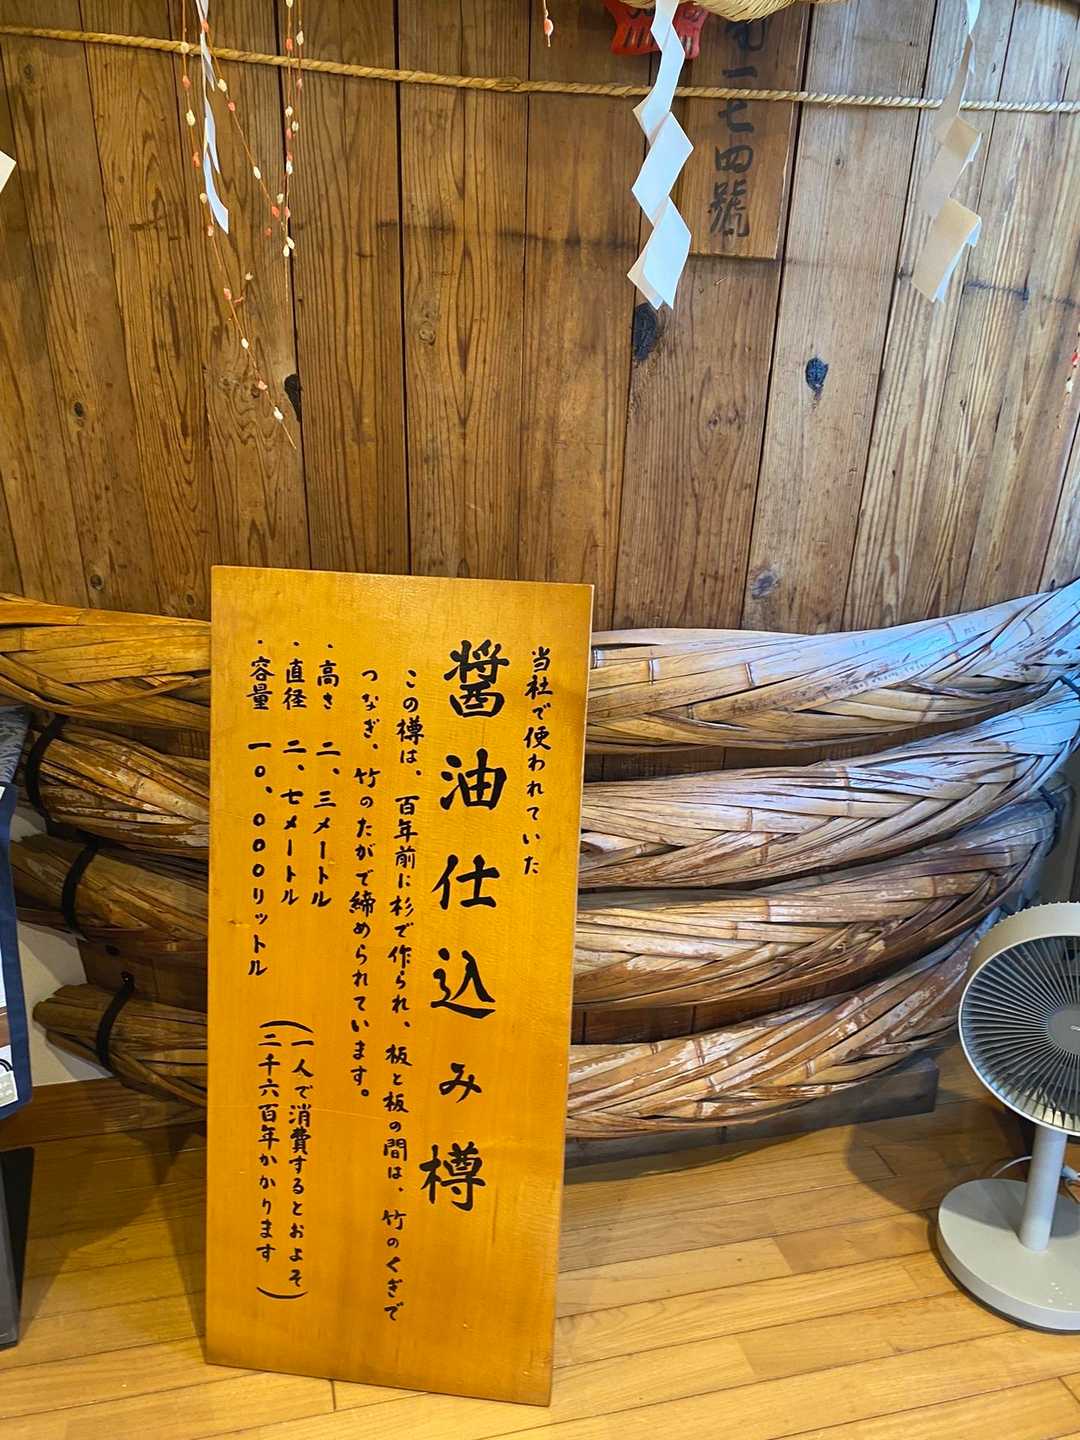 一七四號
当社で使われていた
醤油仕込み樽
この樽は、百年前に杉で作られ、板と板の間は、竹のくぎで
つなぎ、竹のたがで締められています。
・高さ 二、三メートル
・直径 二、七メートル
・容量 一〇、〇〇〇リットル
(一人で消費するとおよそ
二千六百年かかります)